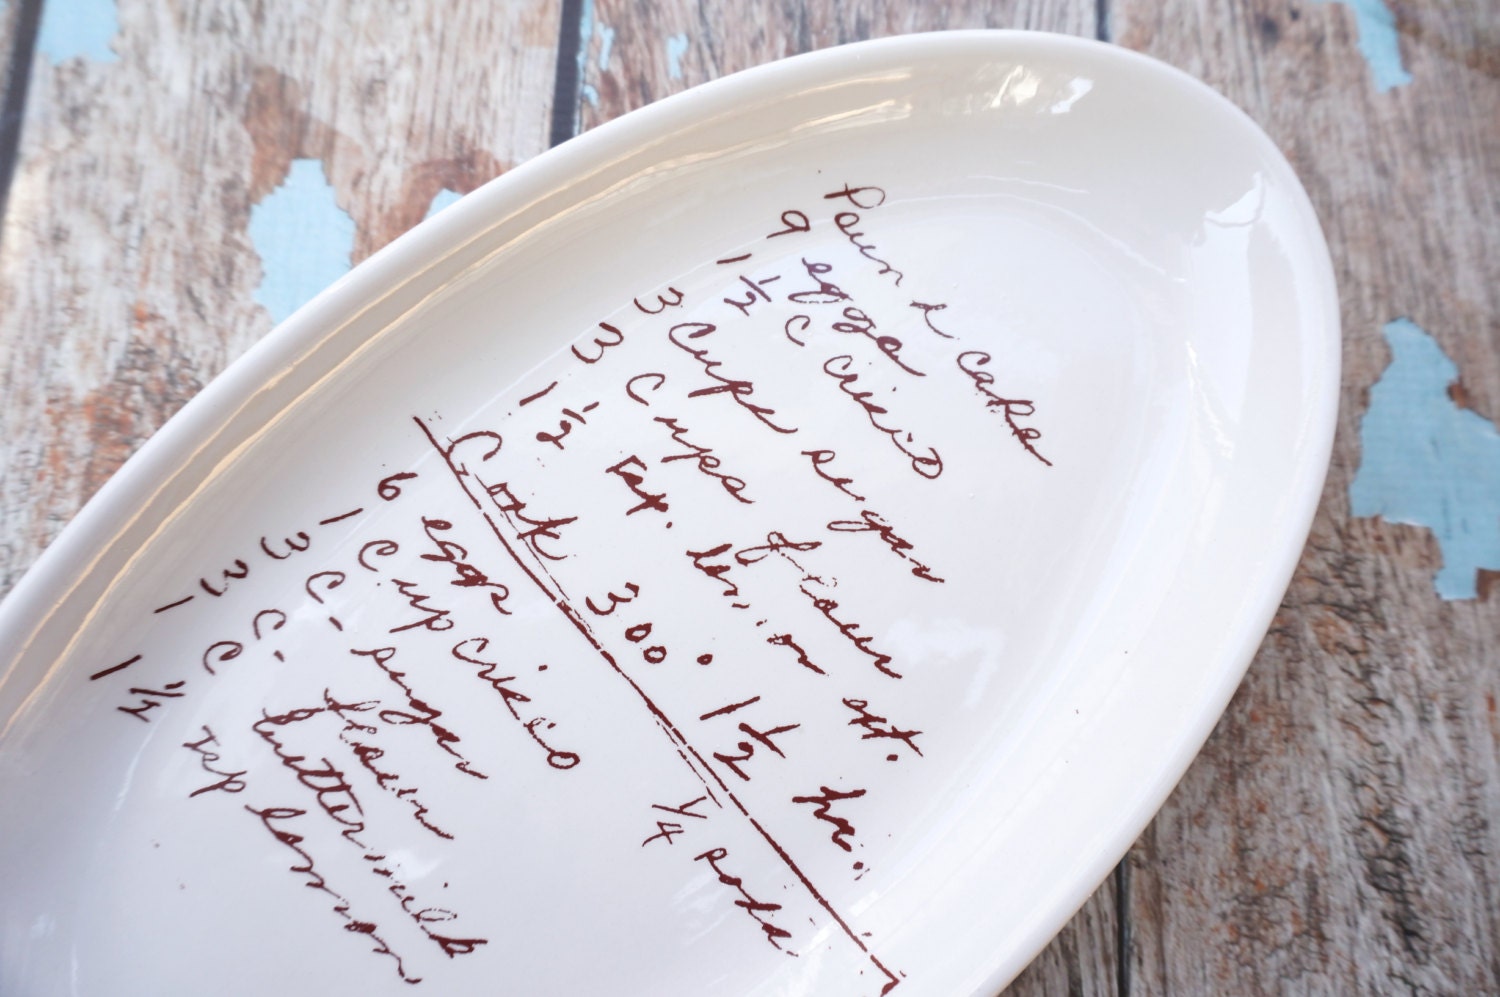 Pound cake
9 eggs
1 1/2 c crisco
3 cups sugar
3 cups flour
1 1/2 tsp. lemon ext.
Cook 300° 1 1/2 hr.
6 eggs
1 cup crisco 1/4 soda
3 c- sugar
3 c- flour
1 c buttermilk
1 1/2 tsp lemon